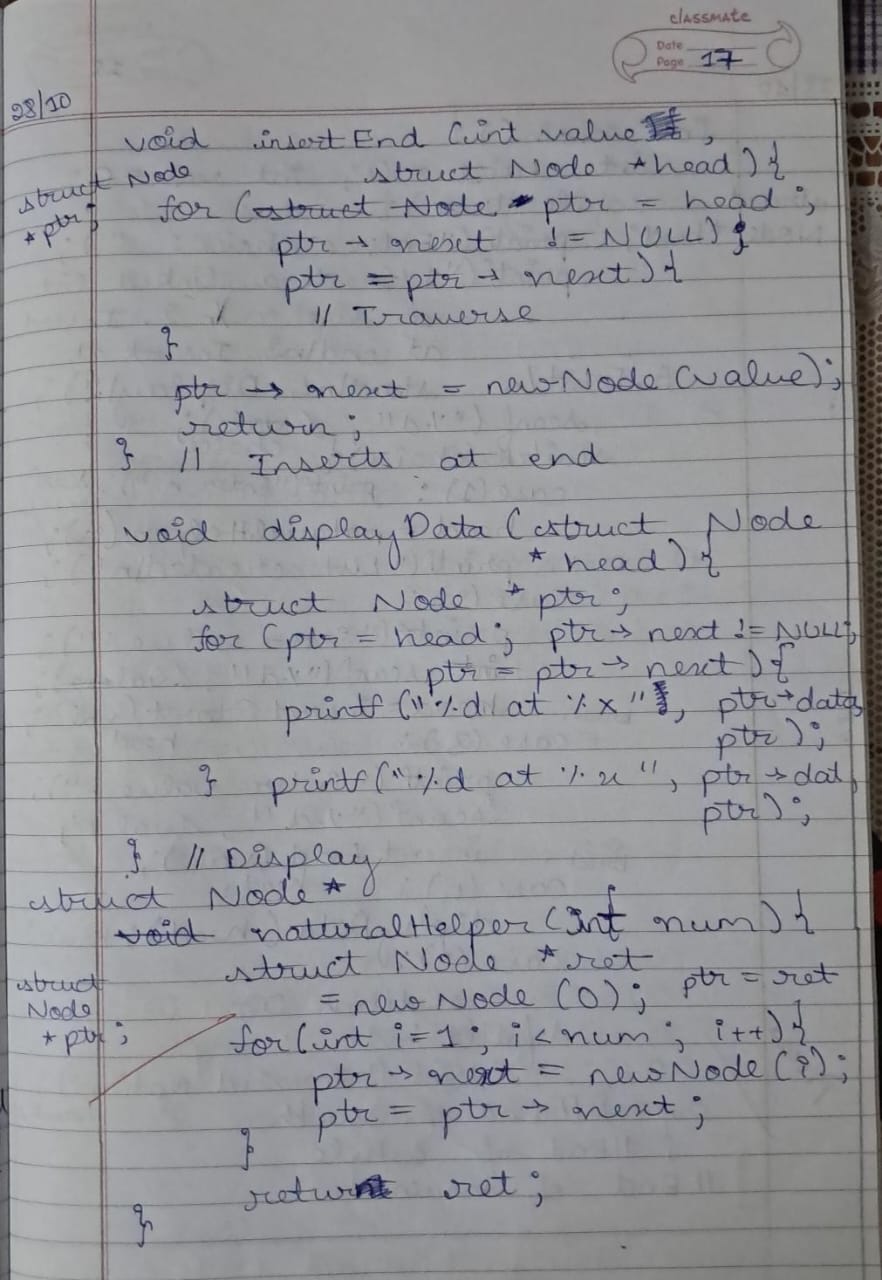 classmate
Date
Page 17
28/10
void insertEnd (int value,
struct Node *head) {
struct Node
*ptr;
for (struct Node * ptr = head ;
ptr → next != NULL) ;
ptr = ptr → next) {
// Traverse
}
ptr → next = newNode (value);
return ;
} // Inserts at end
void displayData (struct Node
* head) {
struct Node * ptr ;
for (ptr = head ; ptr → next != NULL ;
ptr = ptr → next) {
printf ("%d at %x", ptr → data,
ptr ) ;
} printf ("%d at %x", ptr → dat
ptr ) ;
} // Display
struct Node *
void naturalHelper (int num) {
struct Node * ret
= newNode (0) ; ptr = ret
struct
Node
* ptr ;
for (int i=1 ; i < num ; i++) {
ptr → next = newNode (i) ;
ptr = ptr → next ;
}
return ret ;
}